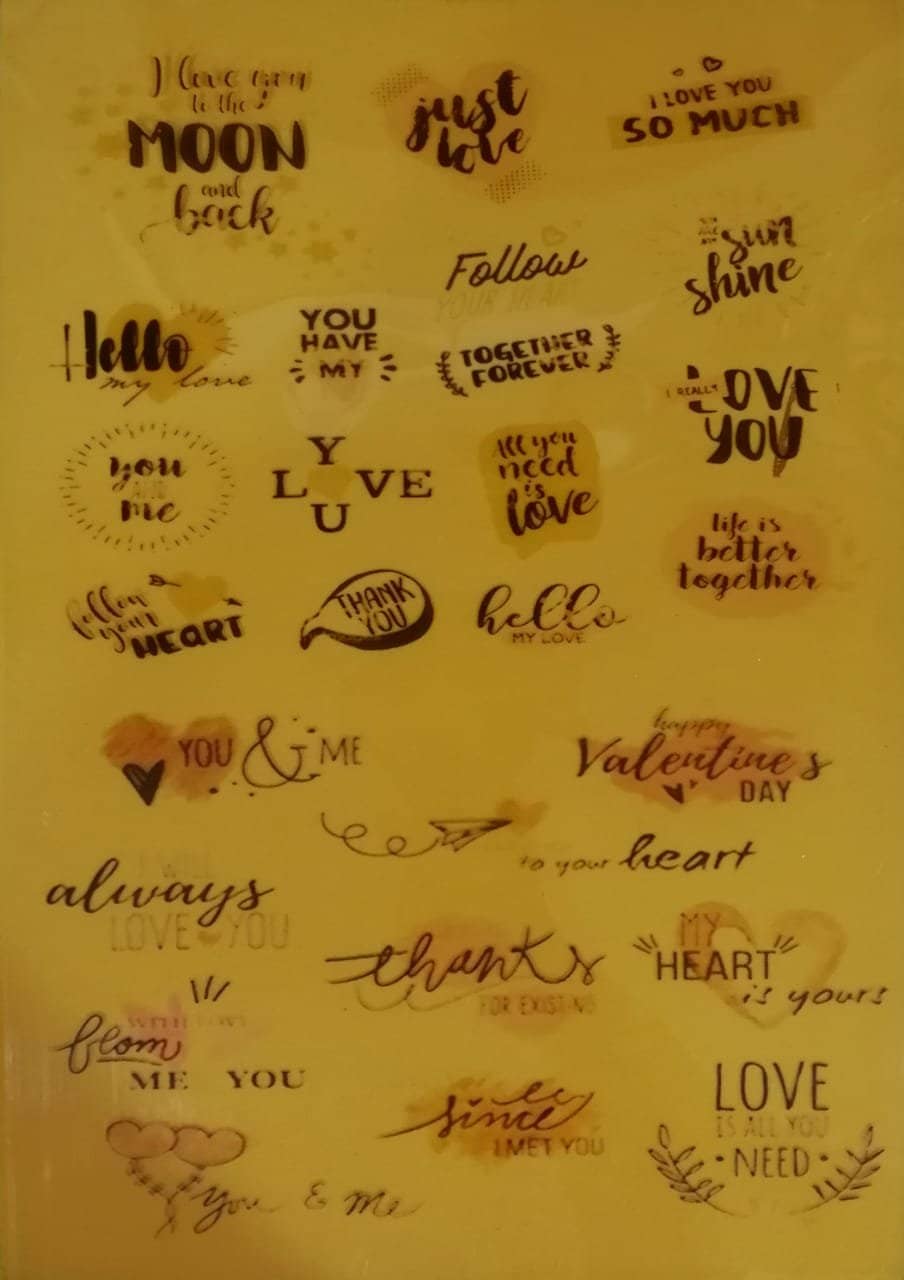 I love you
to the
MOON
and
back
just
love
I LOVE YOU
SO MUCH
Follow
YOUR HEART
sun
shine
Hello
my love
YOU
HAVE
MY
TOGETHER
FOREVER
I REALLY LOVE
YOU
you
AND
me
Y
L VE
U
All you
need
is
love
life is
better
together
follow
your
HEART
THANK
YOU
hello
MY LOVE
YOU & ME
happy
Valentine s
DAY
to your heart
I WILL
always
LOVE YOU
thanks
FOR EXISTING
MY
HEART
is yours
WITH LOVE
from
ME YOU
since
I MET YOU
LOVE
IS ALL YOU
NEED
you & me